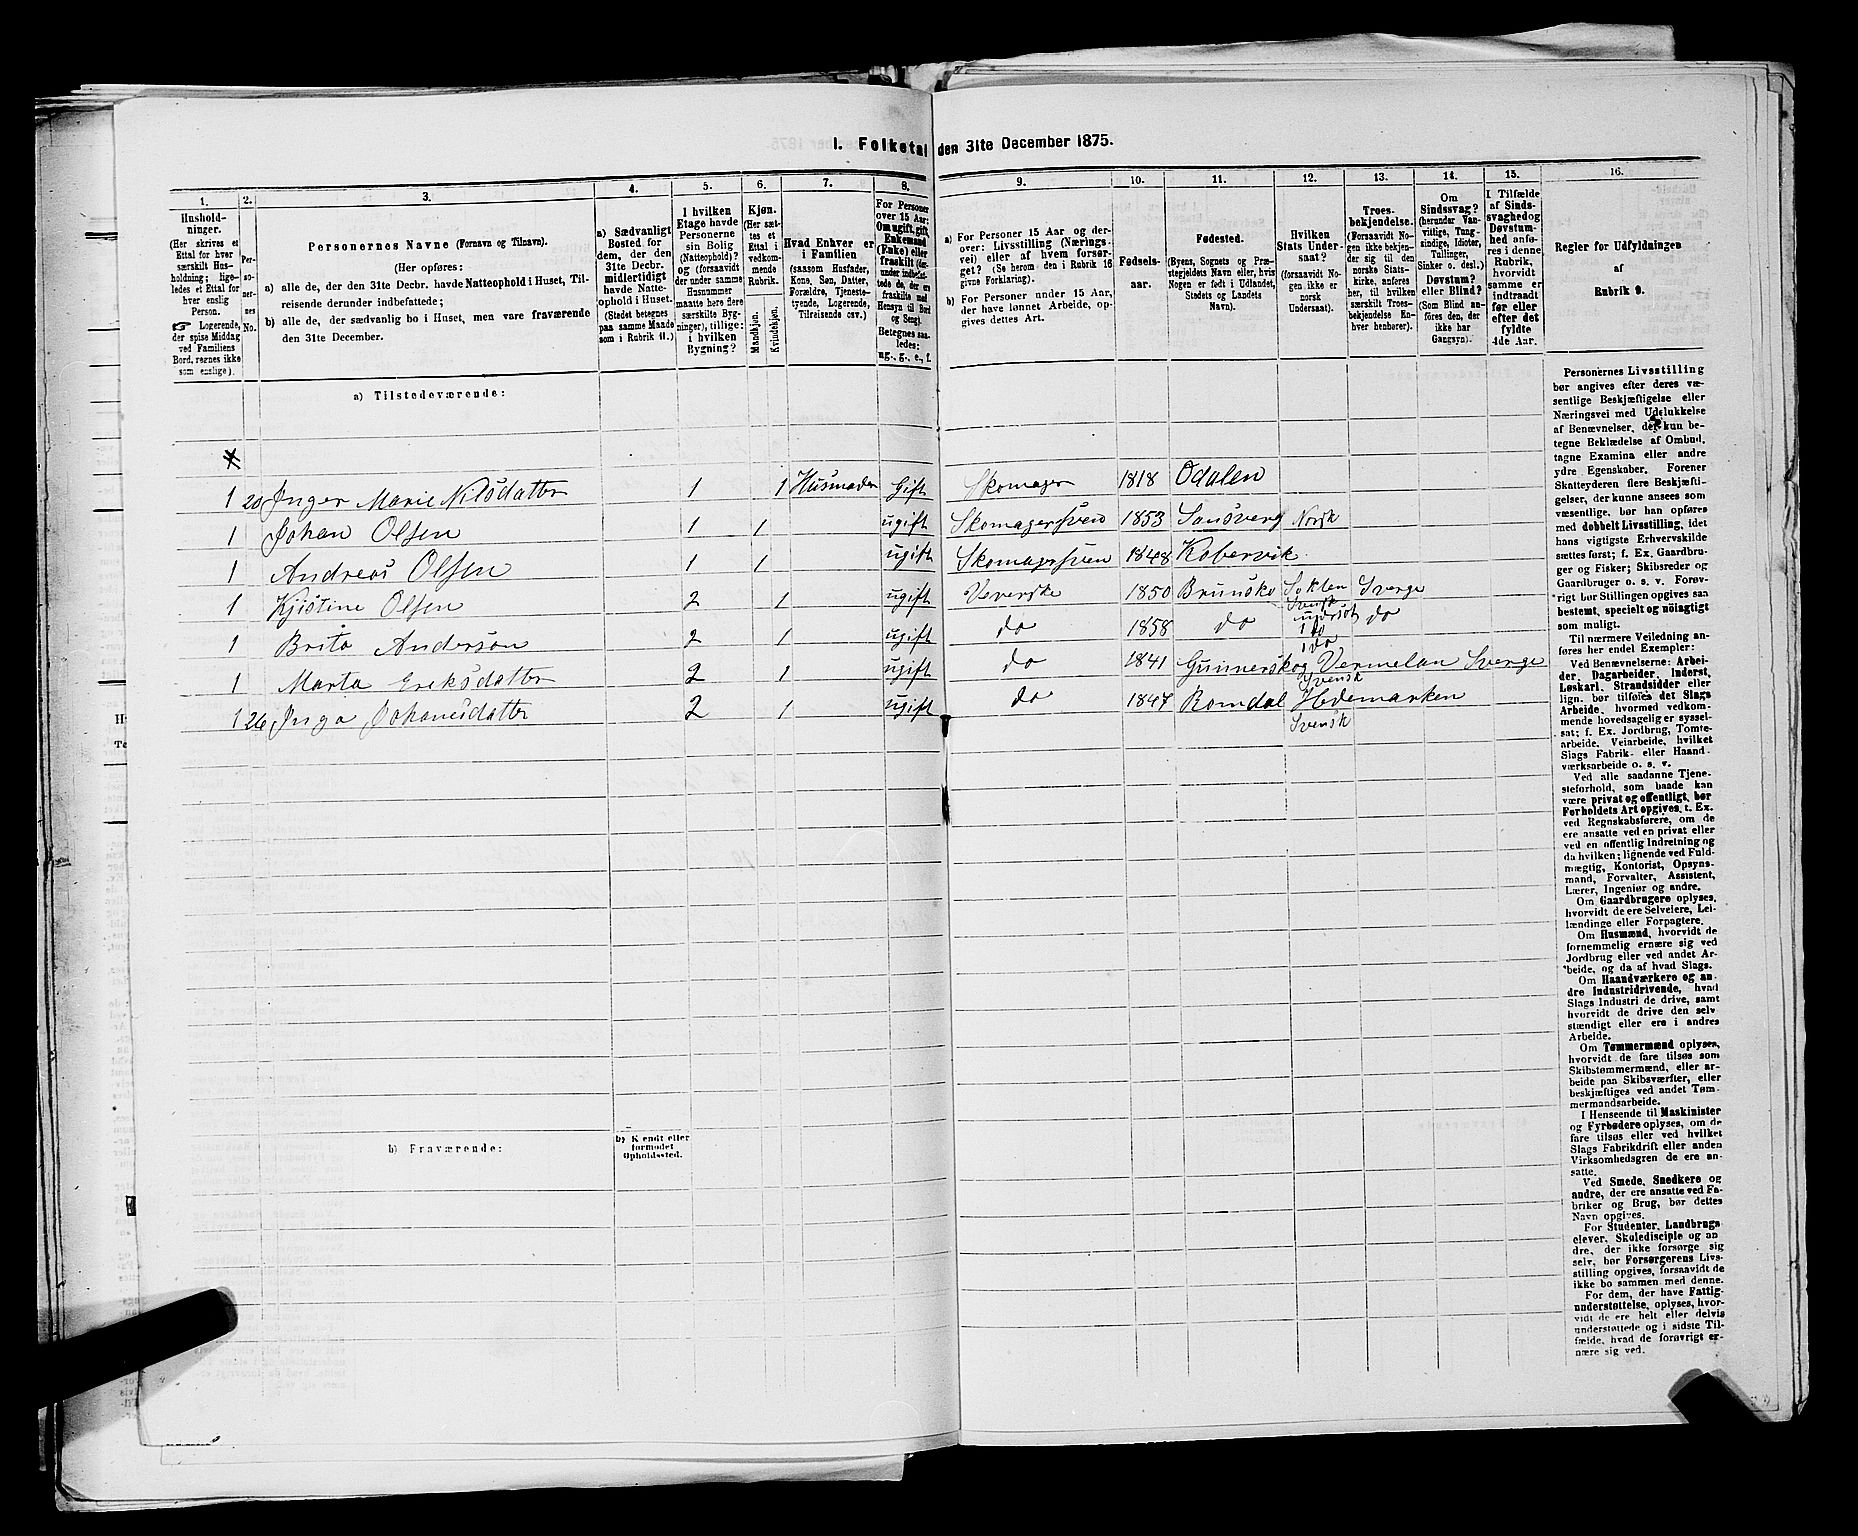 I. Folketal den 31te December 1875.
1. 2. 3. 4. 5. 6. 7. 8. 9. 10. 11. 12. 13. 14. 15. 16.
Hushold-
ninger.
(Her skrives et
Ettal for hver
særskilt Hus-
holdning; lige-
ledes et Ettal for
hver enslig
Person.
☞ Logerende,
der spise Middag
ved Familiens
Bord, regnes ikke
som enslige).
Per-
so-
ner-
nes
No.
Personernes Navne (Fornavn og Tilnavn).
(Her opføres:
a) alle de, der den 31te Decbr. havde Natteophold i Huset, Til-
reisende derunder indbefattede;
b) alle de, der sædvanlig bo i Huset, men vare fraværende
den 31te December.
a) Sædvanligt
Bosted for
dem, der den
31te Decbr.
midlertidigt
havde Natte-
ophold i Huset.
(Stedet betegnes
paa samme Maade
som i Rubrik 11.)
I hvilken
Etage havde
Personerne
sin Bolig
(Natteophold)?
og (forsaavidt
der under samme
Husnummer
maatte høre flere
særskilte Byg-
ninger), tillige:
i hvilken
Bygning?
Kjøn.
(Her sæt-
tes et
Ettal i
vedkom-
mende
Rubrik.
Mandkjøn.
Kvindekjøn.
Hvad Enhver er
i Familien
(saasom Husfader,
Kone, Søn, Datter,
Forældre, Tjeneste-
tyende, Logerende,
Tilreisende osv.)
For Personer
over 15 Aar:
Om ugift, gift,
Enkemand
(Enke) eller
fraskilt (der-
under indbefat-
tede de, der ere
fraskilte med
Hensyn til Bord
og Seng).
Betegnes saa-
ledes:
ug., g., e., f.
a) For Personer 15 Aar og der-
over: Livsstilling (Nærings-
vei) eller af hvem forsør-
get? (Se herom den i Rubrik 16
givne Forklaring).
b) For Personer under 15 Aar,
der have lønnet Arbeide, op-
gives dettes Art.
Fødsels-
aar.
Fødested.
(Byens, Sognets og Præ-
stegjeldets Navn eller, hvis
Nogen er født i Udlandet,
Stedets og Landets
Navn).
Hvilken
Stats Under-
saat?
(forsaavidt No-
gen ikke er
norsk
Undersaat).
Troes-
bekjendelse.
(Forsaavidt No-
gen ikke bekjen-
der sig til den
norske Stats-
kirke, anføres
her, til hvilken
særskilt Troes-
bekjendelse En-
hver henhører).
Om
Sindssvag?
(herunder Van-
vittige, Tung-
sindige, Idioter,
Tullinger,
Sinker o. desl.)
Døvstum?
eller Blind?
(Som Blind an-
føres den, der
ikke har
Gangsyn).
I Tilfælde
af Sinds-
svaghed og
Døvstum-
hed anfø-
res i denne
Rubrik,
hvorvidt
samme er
indtraadt
før eller
efter det
fyldte
4de Aar.
Regler for Udfyldningen
af
Rubrik 9.
a) Tilstedeværende:
1 20 Inger Marie Nilsdatter 1 1 Husmoder Gift Skomager 1818 Odalen
1 Johan Olsen 1 1 ugift Skomagersven 1853 Sansverg Norsk
1 Andreas Olsen 1 1 ugift Skomagersven 1848 Kobervik
1 Kjistine Olsen 2 1 ugift Veverske 1850 Brunsko Sokten Sverge
Svensk
1 Brita Anderson 2 1 ugift do 1858 do undersot do
do
do
1 Marta Eriksdatter 2 1 ugift do 1841 Gunnerskog Vermelan Sverge
Svensk
1 26 Inga Johanesdatter 2 1 ugift do 1847 Romdal Hedemarken
Svensk
b) Fraværende:
b) Kjendt eller
formodet
Opholdssted.
Personernes Livsstilling
bør angives efter deres væ-
sentlige Beskjæftigelse eller
Næringsvei med Udelukkelse
af Benævnelser, der kun be-
tegne Beklædelse af Ombud,
tagne Examina eller andre
ydre Egenskaber. Forener
Skatteyderen flere Beskjæfti-
gelser, der kunne ansees som
væsentlige, bør han opføres
med dobbelt Livsstilling, idet
hans vigtigste Erhvervskilde
sættes først; f. Ex. Gaardbru-
ger og Fisker; Skibsreder og
Gaardbruger o. s. v. Forøv-
rigt bør Stillingen opgives saa
bestemt, specielt og nøiagtigt
som muligt.
Til nærmere Veiledning an-
føres her endel Exempler:
Ved Benævnelserne: Arbei-
der, Dagarbeider, Inderst,
Løskarl, Strandsidder eller
lign. bør tilføies det Slags
Arbeide, hvormed vedkom-
mende hovedsagelig er syssel-
sat; f. Ex. Jordbrug, Tomte-
arbeide, Veiarbeide, hvilket
Slags Fabrik- eller Haand-
værksarbeide o. s. v.
Ved alle saadanne Tjene-
steforhold, som baade kan
være privat og offentligt, bør
Forholdets Art opgives, t. Ex.
ved Regnskabsførere, om de
ere ansatte ved en privat eller
ved en offentlig Indretning og
da hvilken; lignende ved Fuld-
mægtig, Kontorist, Opsyns-
mand, Forvalter, Assistent,
Lærer, Ingeniør og andre.
Om Gaardbrugere oplyses,
hvorvidt de ere Selveiere, Lei-
lændinge eller Forpagtere.
Om Husmænd, hvorvidt de
fornemmelig ernære sig ved
Jordbrug eller ved andet Ar-
beide, og da af hvad Slags.
Om Haandværkere og an-
dre Industridrivende, hvad
Slags Industri de drive, samt
hvorvidt de drive den selv-
stændigt eller ere i andres
Arbeide.
Om Tømmermænd oplyses,
hvorvidt de fare tilsøs som
Skibstømmermænd, eller ar-
beide paa Skibsværfter, eller
beskjæftiges ved andet Tøm-
mermandsarbeide.
I Henseende til Maskinister
og Fyrbødere oplyses, om de
fare tilsøs eller ved hvilket
Slags Fabrikdrift eller anden
Virksomhedsgren de ere an-
satte.
Ved Smede, Snedkere og
andre, der ere ansatte ved Fa-
briker og Brug, bør dettes
Navn opgives.
For Studenter, Landbrugs-
elever, Skoledisciple og an-
dre, der ikke forsørge sig
selv, bør Forsørgerens Livs-
stilling opgives, forsaavidt de
ikke bo sammen med denne.
For dem, der have Fattig-
understøttelse, oplyses, hvor-
vidt de ere helt eller delvis
understøttede og i sidste Til-
fælde, hvad de forøvrigt er-
nære sig ved.